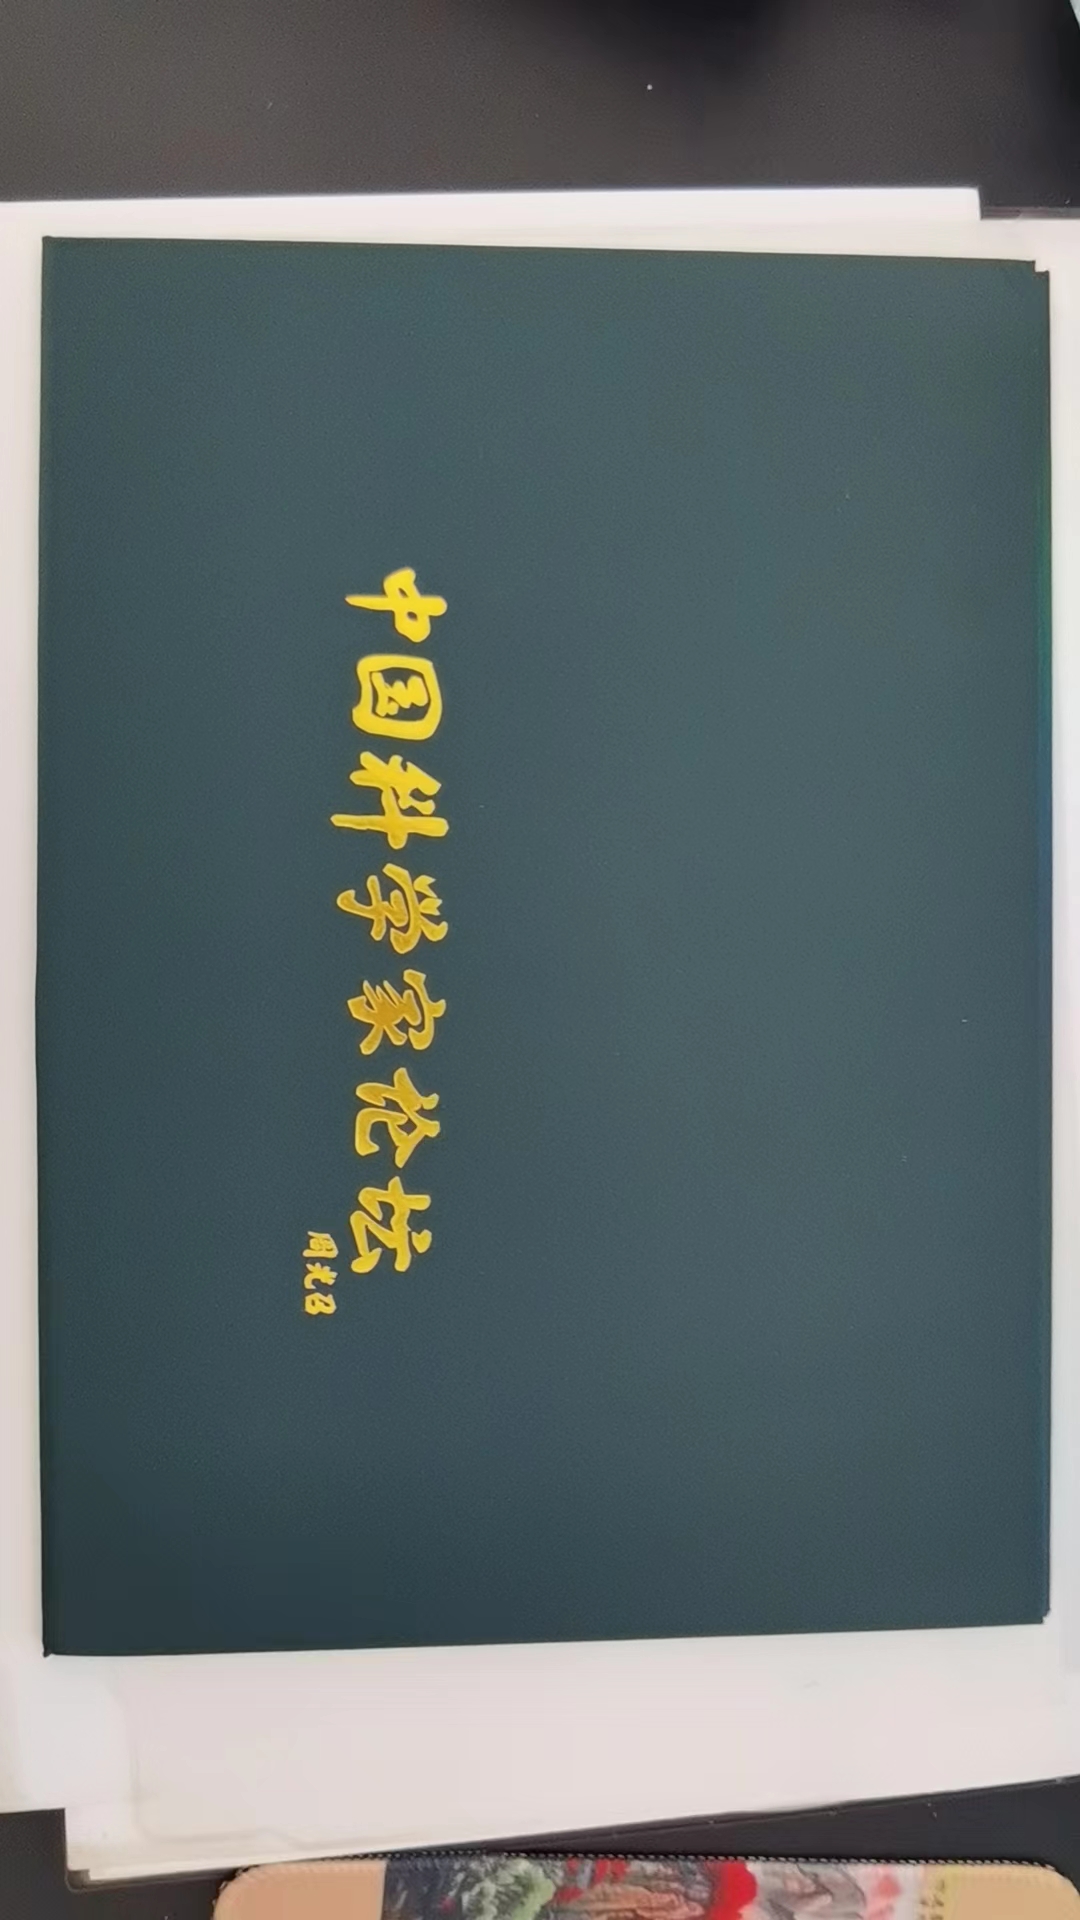 中国科学家论坛
周光召